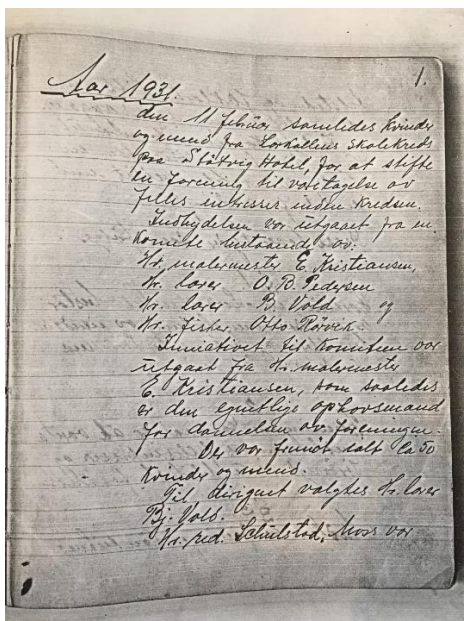 1.
Aar 1931.
den 11 februar samledes kvinder
og mend fra Lorkollens Skolekreds
paa Støtvig Hotel, for at stifte
en forening til varetagelse av
felles interesser inden kredsen.
Indbydelsen var utgaaet fra en
komite bestaaende av:
Hr. malermester E. Kristiansen,
Hr. lærer O. B. Pedersen
Hr. lærer B. Vold og
Hr. fisker Otto Rörvik
Iniativet til komiteen var
utgaat fra Hr. malermester
E. Kristiansen, som saaledes
er den egentlige ophovsmand
for dannelsen av foreningen.
Der var fremöt ialt ca 50
kvinder og mend.
Til dirigent valgtes Hr. lærer
Bj. Vold.
Hr. red. Schulstad, Moss var